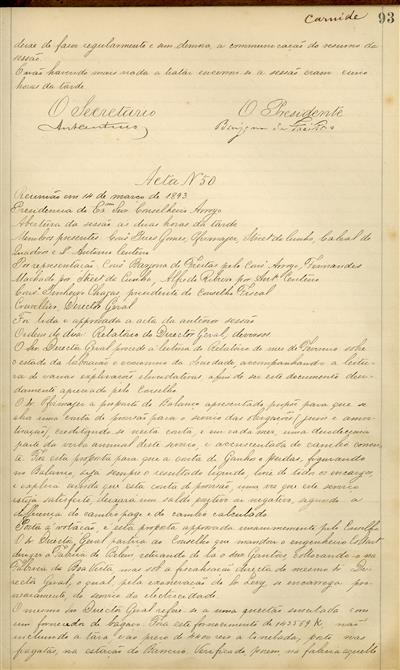 Carnide 93
deixe de fazer regularmente e sem demora, a communicação do resumo da
sessão.
E não havendo mais nada a tratar encerrou-se a sessão eram cinco
horas da tarde
O Secretario O Presidente
Acta Nº 50
Reunião em 14 de março de 1893
Presidencia do Exmo Snr Conselheiro Arroyo
Abertura da sessão ás duas horas da tarde
Membros presentes Cons Pires Gomes, Cabral de
Quadros e Antonio Centeno
Por representação Cons de Freitas pelo Cons Arroyo, Fernandes
Machado por do Cunho, Alfredo Ribeiro por Antº Centeno
Cons Pinheiro Chagas, presidente do Conselho Fiscal
Director Geral
Foi lida e approvada a acta da anterior sessão
Ordem do dia: Relatorio do Director Geral, diversos
O Snr Director Geral procede á leitura do Relatorio do mez de Fevereiro sobre
o estado da laboração e economia da Sociedade, acompanhando a leitu-
ra de varias explicações elucidativas afim de ser este documento devi-
damente apreciado pelo Conselho
O Sr a proposito do Balanço apresentado propõe para que se
abra uma conta de provisão para o serviço das obrigações (juros e amor-
tisação), creditando-se n'esta conta, e em cada mez, uma duodecima
parte da verba annual deste serviço, e accrescentada do cambio corren-
te. Foi esta proposta para que a conta de Ganhos e Perdas, figurando
no Balanço, seja sempre o resultado liquido, livre de todos os encargos,
e explica ainda que esta conta de provisão, uma vez que este serviço
esteja satisfeito, deixará um saldo positivo ou negativo, segundo a
differença do cambio pago e do cambio calculado.
Posta á votação é esta proposta approvada unanimemente pelo Conselho
O Sr Director Geral participa ao Conselho que mandou o engenheiro
dirigir a Fabrica de Belem, retirando de lá o snr Santos, collocando-o na
Fabrica da Boa Vista mas sob a fiscalisação directa do mesmo Sr Di-
rector Geral, o qual, pela exoneração do Sr Levy, se encarrega pro-
visoriamente, do serviço da electricidade.
O mesmo Snr Director Geral refere-se a uma questão suscitada com
um fornecedor de bagaço. Foi este fornecimento de 143569 K, não
incluindo a tara e ao preço de reis a tonelada, posta nas
fragatas, na estação do Barreiro. Verificado, porem na fabrica aquelle